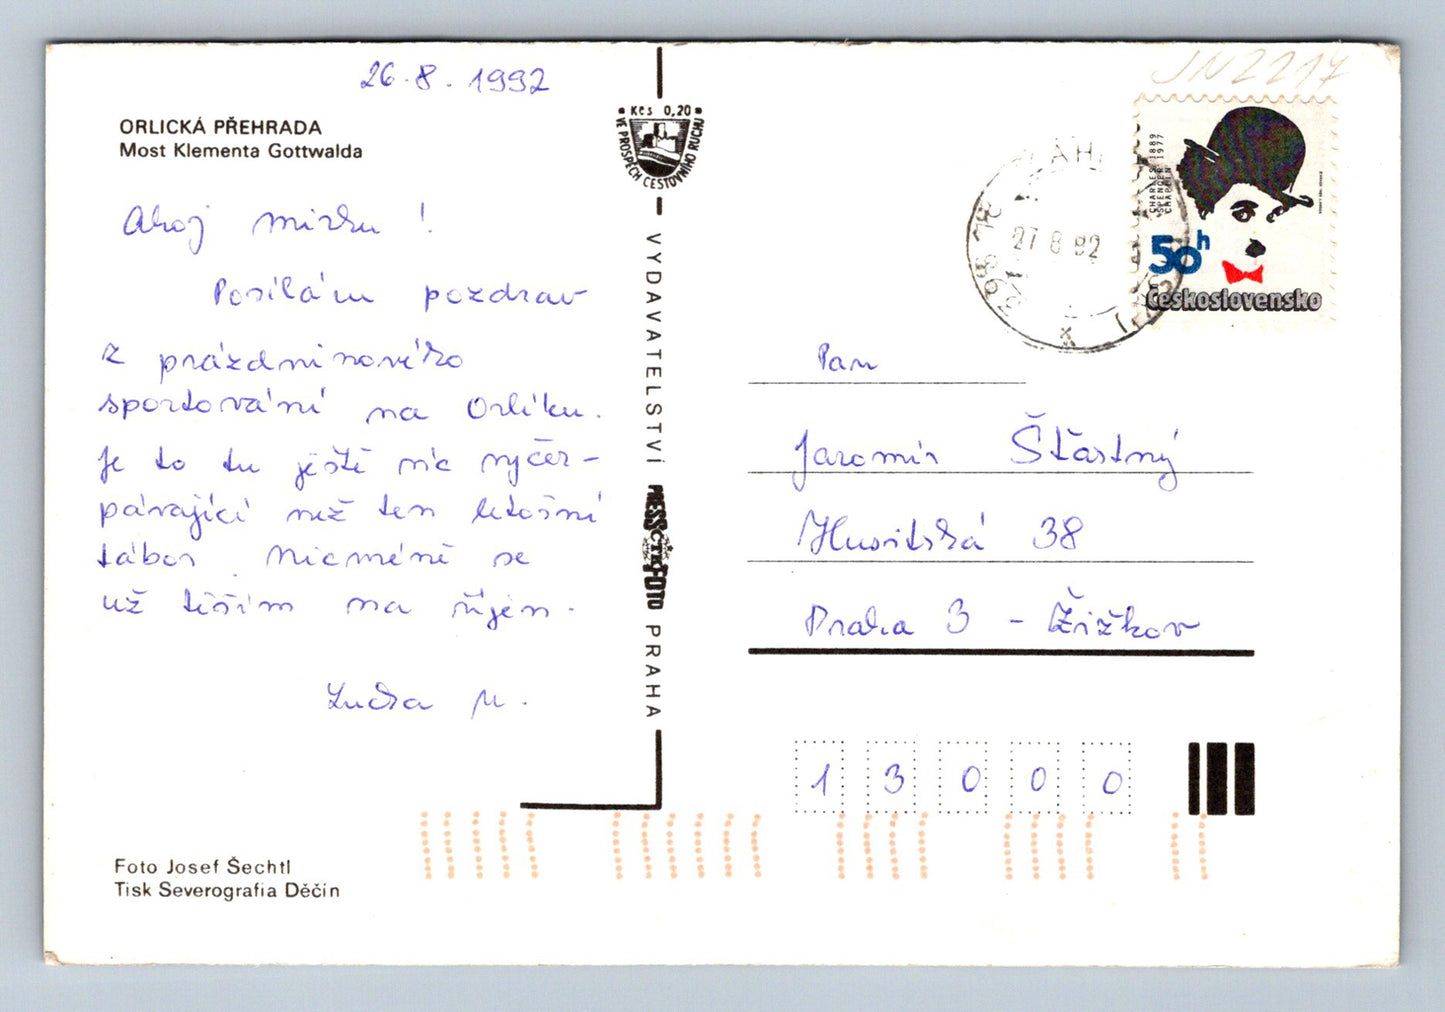 26.8.1992
ORLICKÁ PŘEHRADA
Most Klementa Gottwalda
Ahoj mirku!
Posílám pozdrav
z prázdninového
sportování na Orlíku.
Je to tu ještě víc vyčer-
pávající než ten letošní
tábor. Nicméně se
už těším na říjen.
Lucka M.
Foto Josef Šechtl
Tisk Severografia Děčín
Kčs 0,20
VE PROSPĚCH CESTOVNÍHO RUCHU
VYDAVATELSTVÍ PRESSFOTO PRAHA
ČTK
JN2217
CHARLES 1889
SPENCER 1977
CHAPLIN
50h
Československo
27 8 92
Pan
Jaromír Šťastný
Husitská 38
Praha 3 - Žižkov
13000